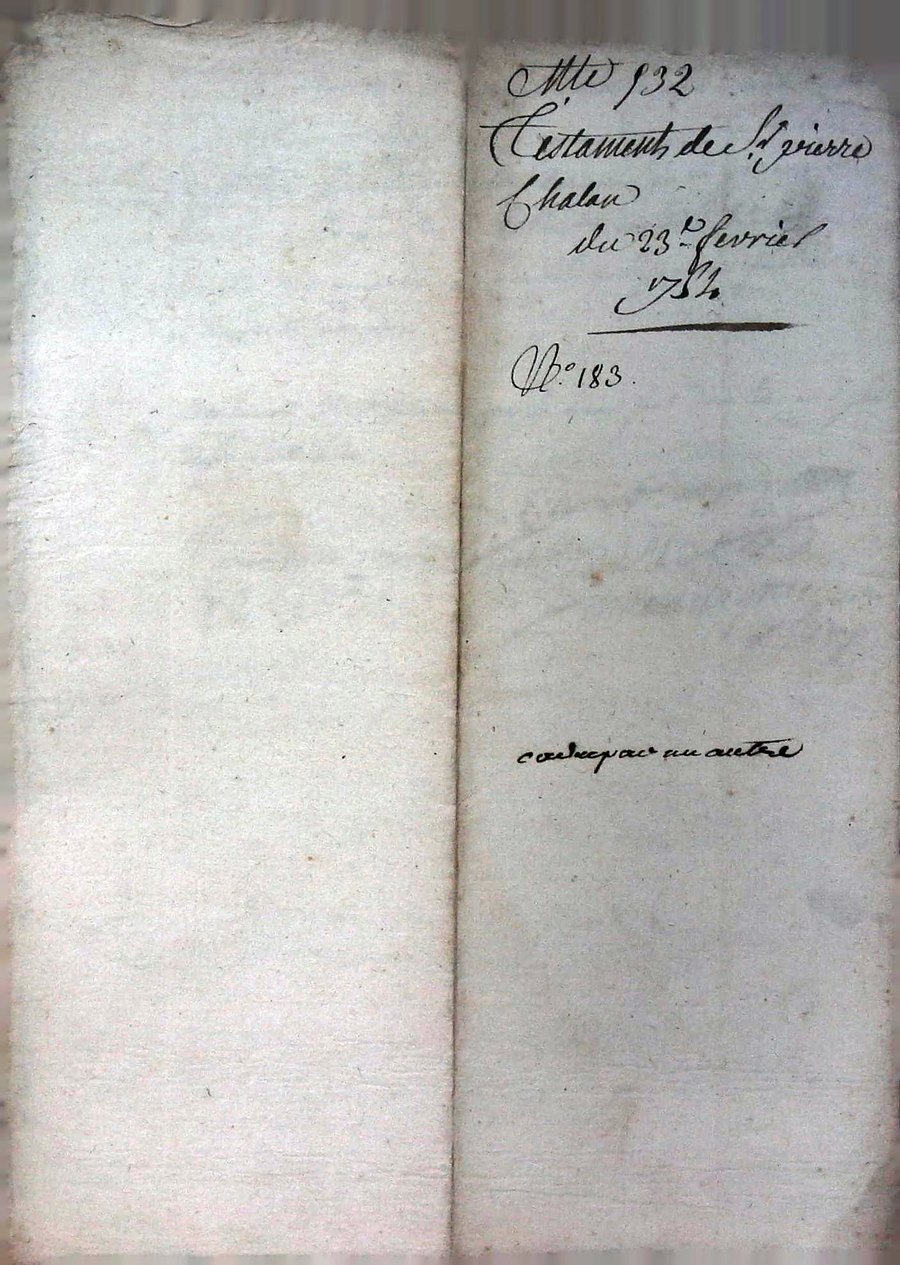 932
Testament de Sr. pierre
Chalan
du 23e fevrier
1754
No. 183.
un autre